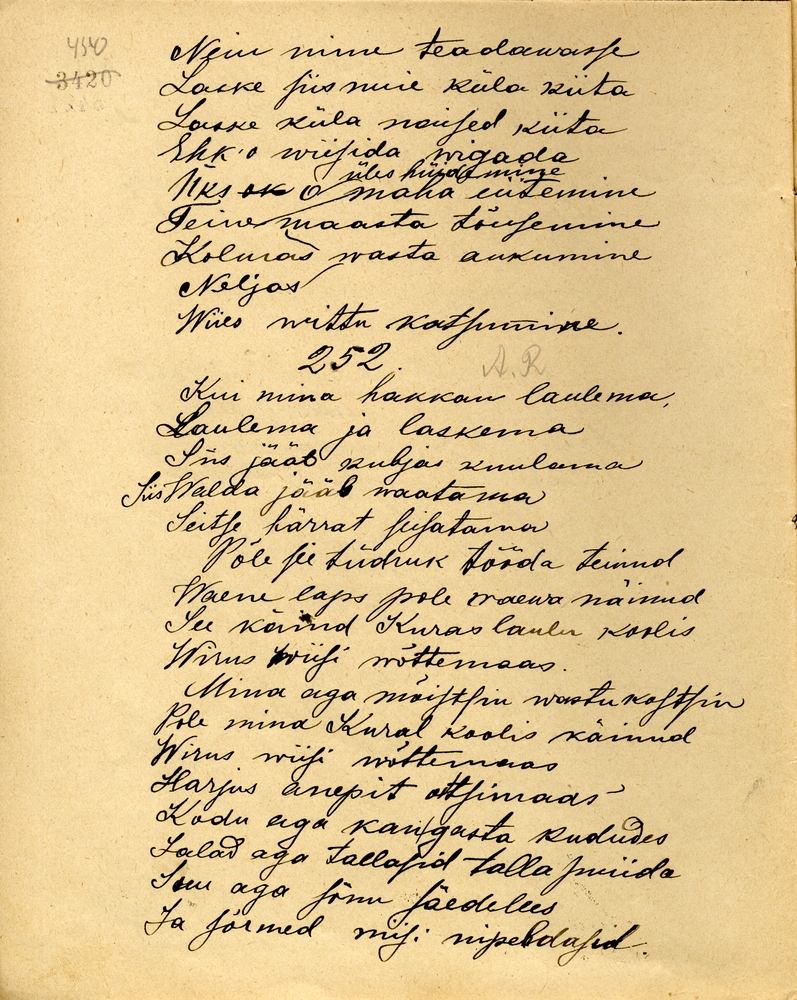 450
3420
Neiu nime teadawasse
Laske siis meie küla kiita
Laske küla naised kiita
Ehk'o wiisida wigada
üles hüidmine
Üks o maha eitemine
Teine maasta tõusemine
Kolmas wasta aukumine
Neljas
Wiies wittu katsumine.
252. A. R
Kui mina hakkan laulema,
Laulema ja laskema
Siis jääb kubjas kuulama
Siis Walda jääb waatama
Seitse härrat seisatama
Põle sie tüdruk tööda teinud
Waene laps pole waewa näinud
See käind Kuras laulu koolis
Wirus wiisi wõttemaas.
Mina aga mõistsin wastu kostsin
Pole mina Kural koolis käinud
Wirus wiisi wõttemaas
Harjus anepit ottsimaas
Kodu aga kangasta kududes
Jalad aga tallasid talla puida
Suu aga sõnu säedeles
Ja sõrmed niisi nipeldasid.